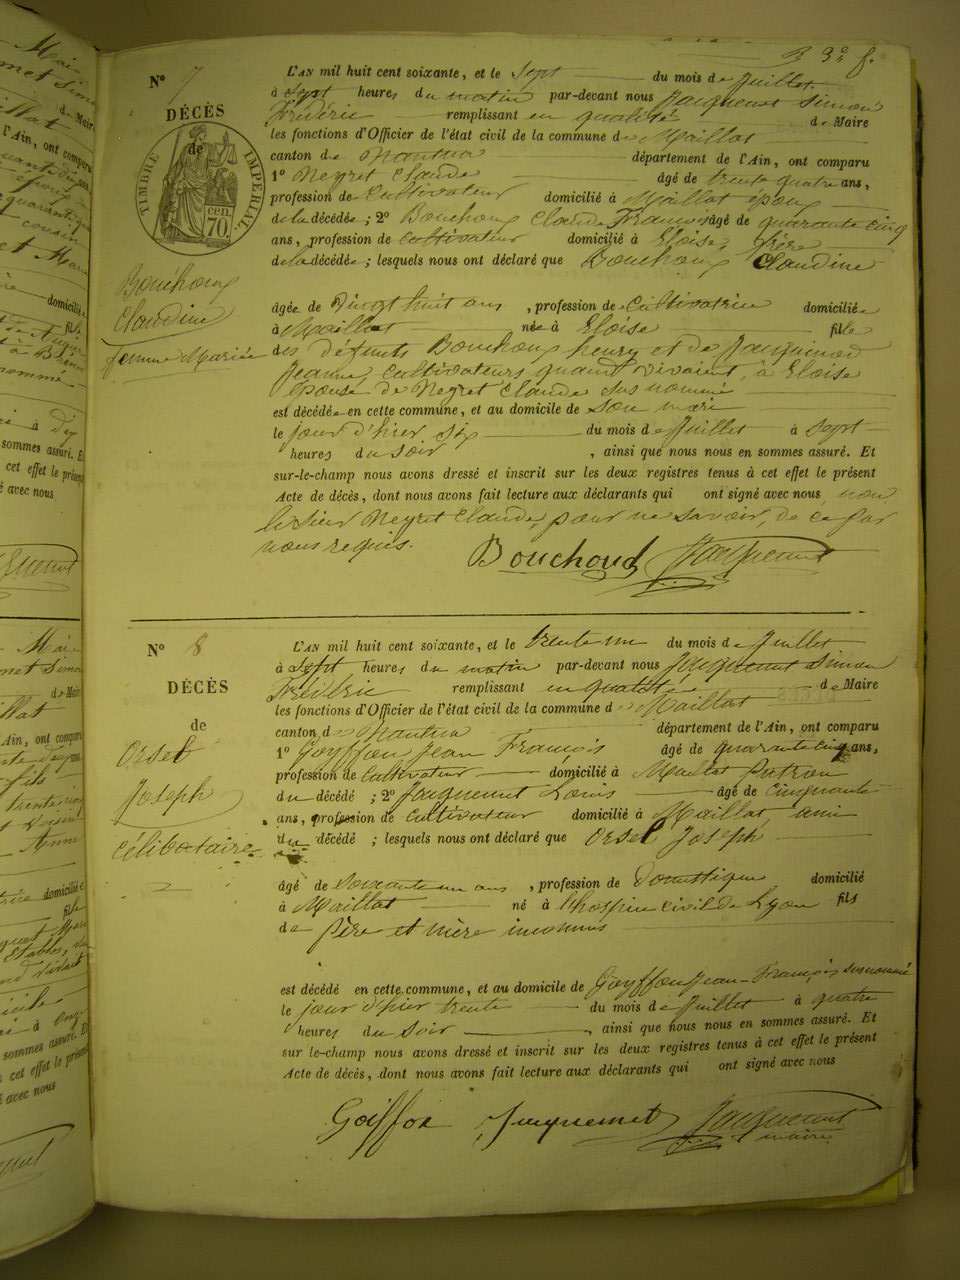 3 3e f.
N° 7
DÉCÈS
de
TIMBRE IMPÉRIAL
70 cen.
Bouchoud
Claudine
femme Mariée
L'AN mil huit cent soixante, et le Sept du mois de Juillet
à Sept heures du matin par-devant nous Jacquemet Simon
Fréderic remplissant en qualité de Maire
les fonctions d'Officier de l'état civil de la commune de Maillat
canton de Nantua département de l'Ain, ont comparu
1° Neyret Claude âgé de trente quatre ans,
profession de Cultivateur domicilié à Maillat époux
de la décédée ; 2° Bouchoud Claude François âgé de quarante cinq
ans, profession de Cultivateur domicilié à Eloise, frère
de la décédée ; lesquels nous ont déclaré que Bouchoud Claudine
âgée de Vingt huit ans , profession de Cultivatrice domiciliée
à Maillat née à Eloise fille
des défunts Bouchoud henry et de Jacquinod
Jeanne, Cultivateurs quand vivaient, à Eloise
épouse de Neyret Claude susnommé
est décédée en cette commune, et au domicile de son mari
le jour d'hier six du mois de Juillet à sept
heures du soir , ainsi que nous nous en sommes assuré. Et
sur-le-champ nous avons dressé et inscrit sur les deux registres tenus à cet effet le présent
Acte de décès, dont nous avons fait lecture aux déclarants qui ont signé avec nous non
le sieur Neyret Claude, pour ne savoir, de ce par
nous requis.
Bouchoud Jacquemet
N° 8
DÉCÈS
de
Orsel
Joseph
Célibataire
L'AN mil huit cent soixante, et le trente un du mois de Juillet
à Sept heures du matin par-devant nous Jacquemet Simon
Fréderic remplissant en qualité de Maire
les fonctions d'Officier de l'état civil de la commune de Maillat
canton de Nantua département de l'Ain, ont comparu
1° Goyffon Jean François âgé de quarante cinq ans,
profession de Cultivateur domicilié à Maillat Patron
du décédé ; 2° Jacquemet Louis âgé de Cinquante
ans, profession de Cultivateur domicilié à Maillat ami
du décédé ; lesquels nous ont déclaré que Orsel Joseph
âgé de soixante un ans , profession de Domestique domicilié
à Maillat né à l'hospice civil de Lyon fils
de père et mère inconnus
est décédé en cette commune, et au domicile de Goyffon Jean-François susnommé
le jour d'hier trente du mois de Juillet à quatre
heures du soir , ainsi que nous nous en sommes assuré. Et
sur le-champ nous avons dressé et inscrit sur les deux registres tenus à cet effet le présent
Acte de décès, dont nous avons fait lecture aux déclarants qui ont signé avec nous
Goiffon Jacquemet Jacquemet
maire